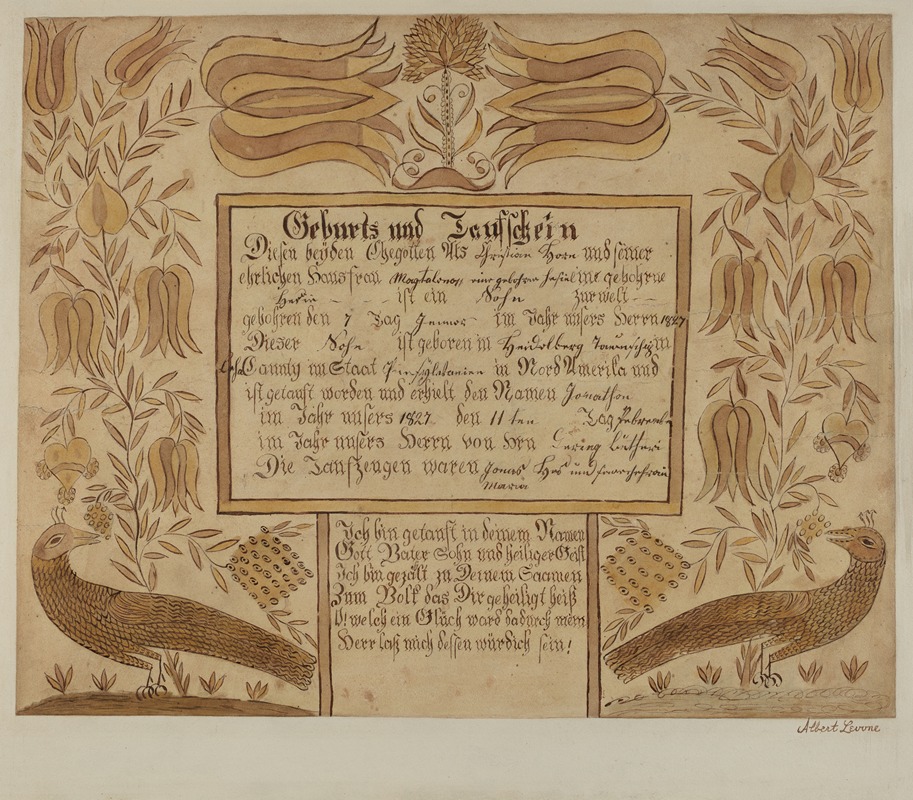 Geburts und Taufschein
Diesen beyden Ehegotten Als Christian Horn und seiner
ehrlichen Hausfrau Magtalena eine gebohrne
ist ein Sohn zur welt
gebohren den 7 Tag Jenner im Jahr unsers Herrn 1827
Dieser Sohn ist geboren in Heidelberg Taunschip in
County im Staat Pinsylvanien in Nord Amerika und
ist getauft worden und erhielt den Namen Jonathan
im Jahr unsers 1827 den 11 ten Tag
im Jahr unsers Herrn von Hrn
Die Taufzeugen waren Jonas Has und
Maria
Ich bin getauft in deinem Namen
Gott Vater Sohn und heiliger Geist
Ich bin gezält zu Deinem Saamen
Zum Volk das Dir geheiligt heiß
O! welch ein Glück ward dadurch mein
Herr laß mich dessen würdich sein!
Albert Levone